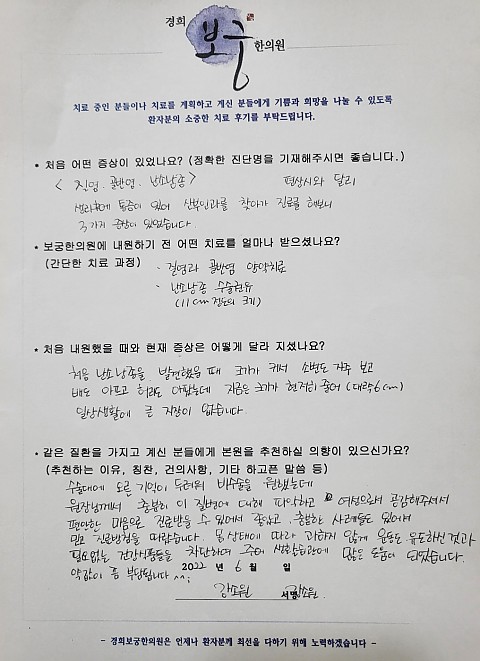 경희 보궁 한의원
치료 중인 분들이나 치료를 계획하고 계신 분들에게 기쁨과 희망을 나눌 수 있도록
환자분의 소중한 치료 후기를 부탁드립니다.
* 처음 어떤 증상이 있었나요? (정확한 진단명을 기재해주시면 좋습니다.)
< 질염. 골반염. 난소낭종 > 평상시와 달리
생리후에 통증이 있어 산부인과를 찾아가 진료를 해보니
3가지 증상이 있었습니다
* 보궁한의원에 내원하기 전 어떤 치료를 얼마나 받으셨나요?
(간단한 치료 과정)
· 질염과 골반염 양약치료
· 난소낭종 수술권유
(11cm 정도의 크기)
* 처음 내원했을 때와 현재 증상은 어떻게 달라 지셨나요?
처음 난소낭종을 발견했을 때 크기가 커서 소변도 자주 보고
배도 아프고 허리도 아팠는데 지금은 크기가 현저히 줄어 (대략 6cm)
일상생활에 큰 지장이 없습니다.
* 같은 질환을 가지고 계신 분들에게 본원을 추천하실 의향이 있으신가요?
(추천하는 이유, 칭찬, 건의사항, 기타 하고픈 말씀 등)
수술대에 오른 기억이 두려워 비수술을 원했는데
원장님께서 충분히 이 질병에 대해 파악하고 여성으로서 공감해주셔서
편안한 마음으로 진료받을 수 있어서 좋았고. 충분한 사례들도 있어서
믿고 진료방침을 따랐습니다. 몸상태에 따라 과하지 않게 운동도 유도하신 것과
필요없는 건강식품들을 차단하여 주며 생활습관에 많은 도움이 되었습니다.
약값이 좀 부담됩니다 ^^;
2022 년 6 월 일
강소원 서명
- 경희보궁한의원은 언제나 환자분께 최선을 다하기 위해 노력하겠습니다 -